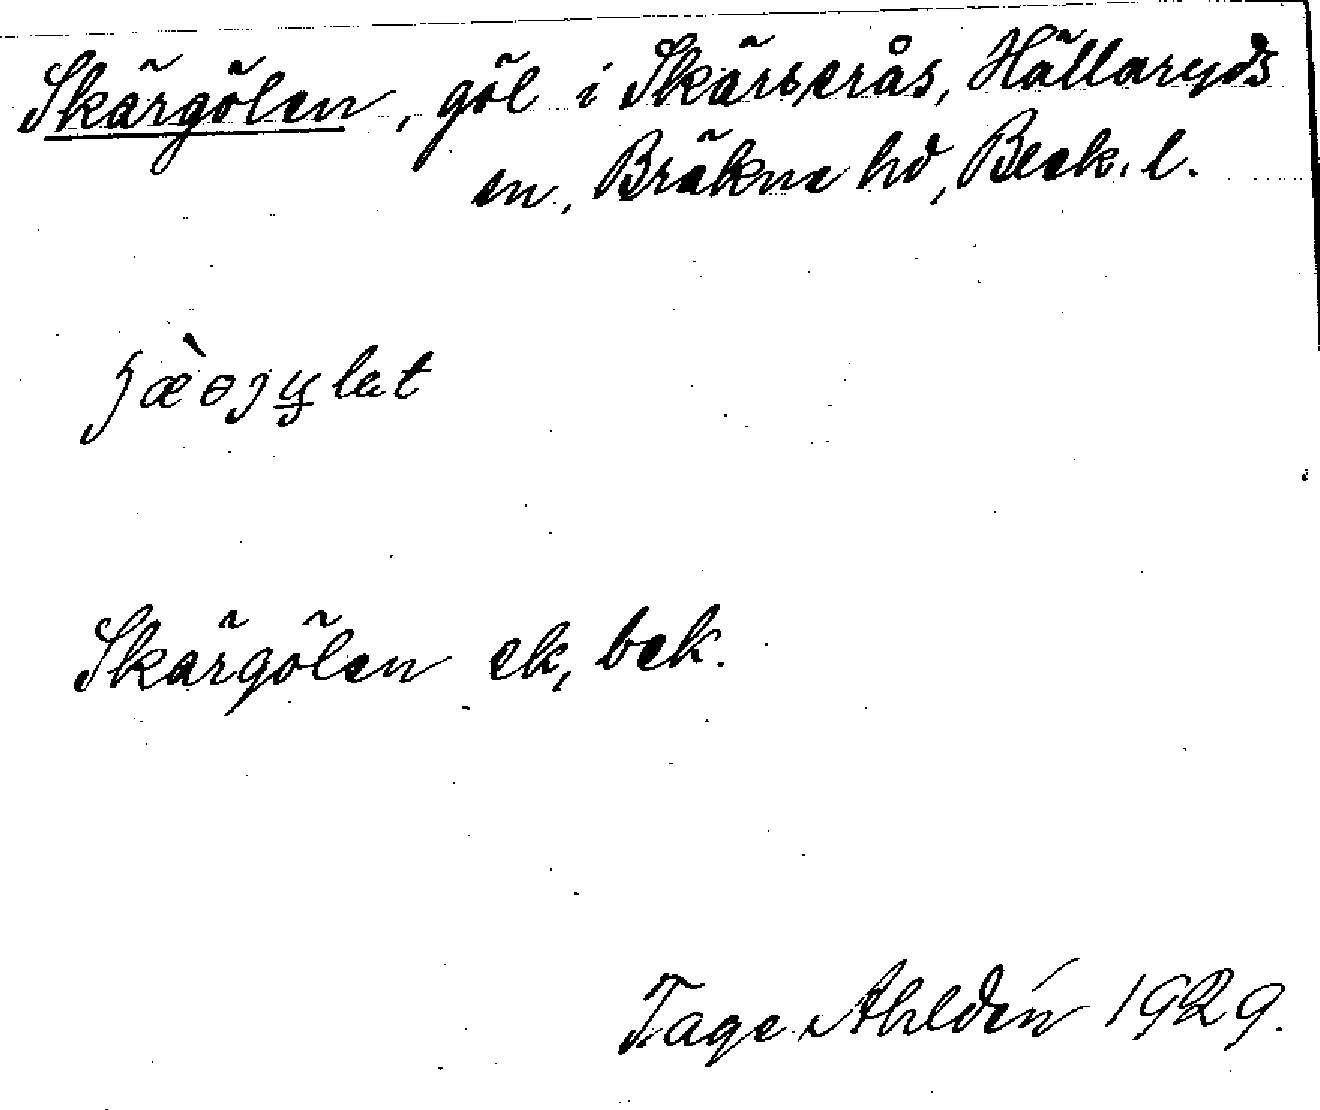 Skärgölen, göl i Skärserås, Hällaryds
sn, Bräkne hd, Blek. l.
Skärgölen ek, bek.
Tage Ahldén 1929.